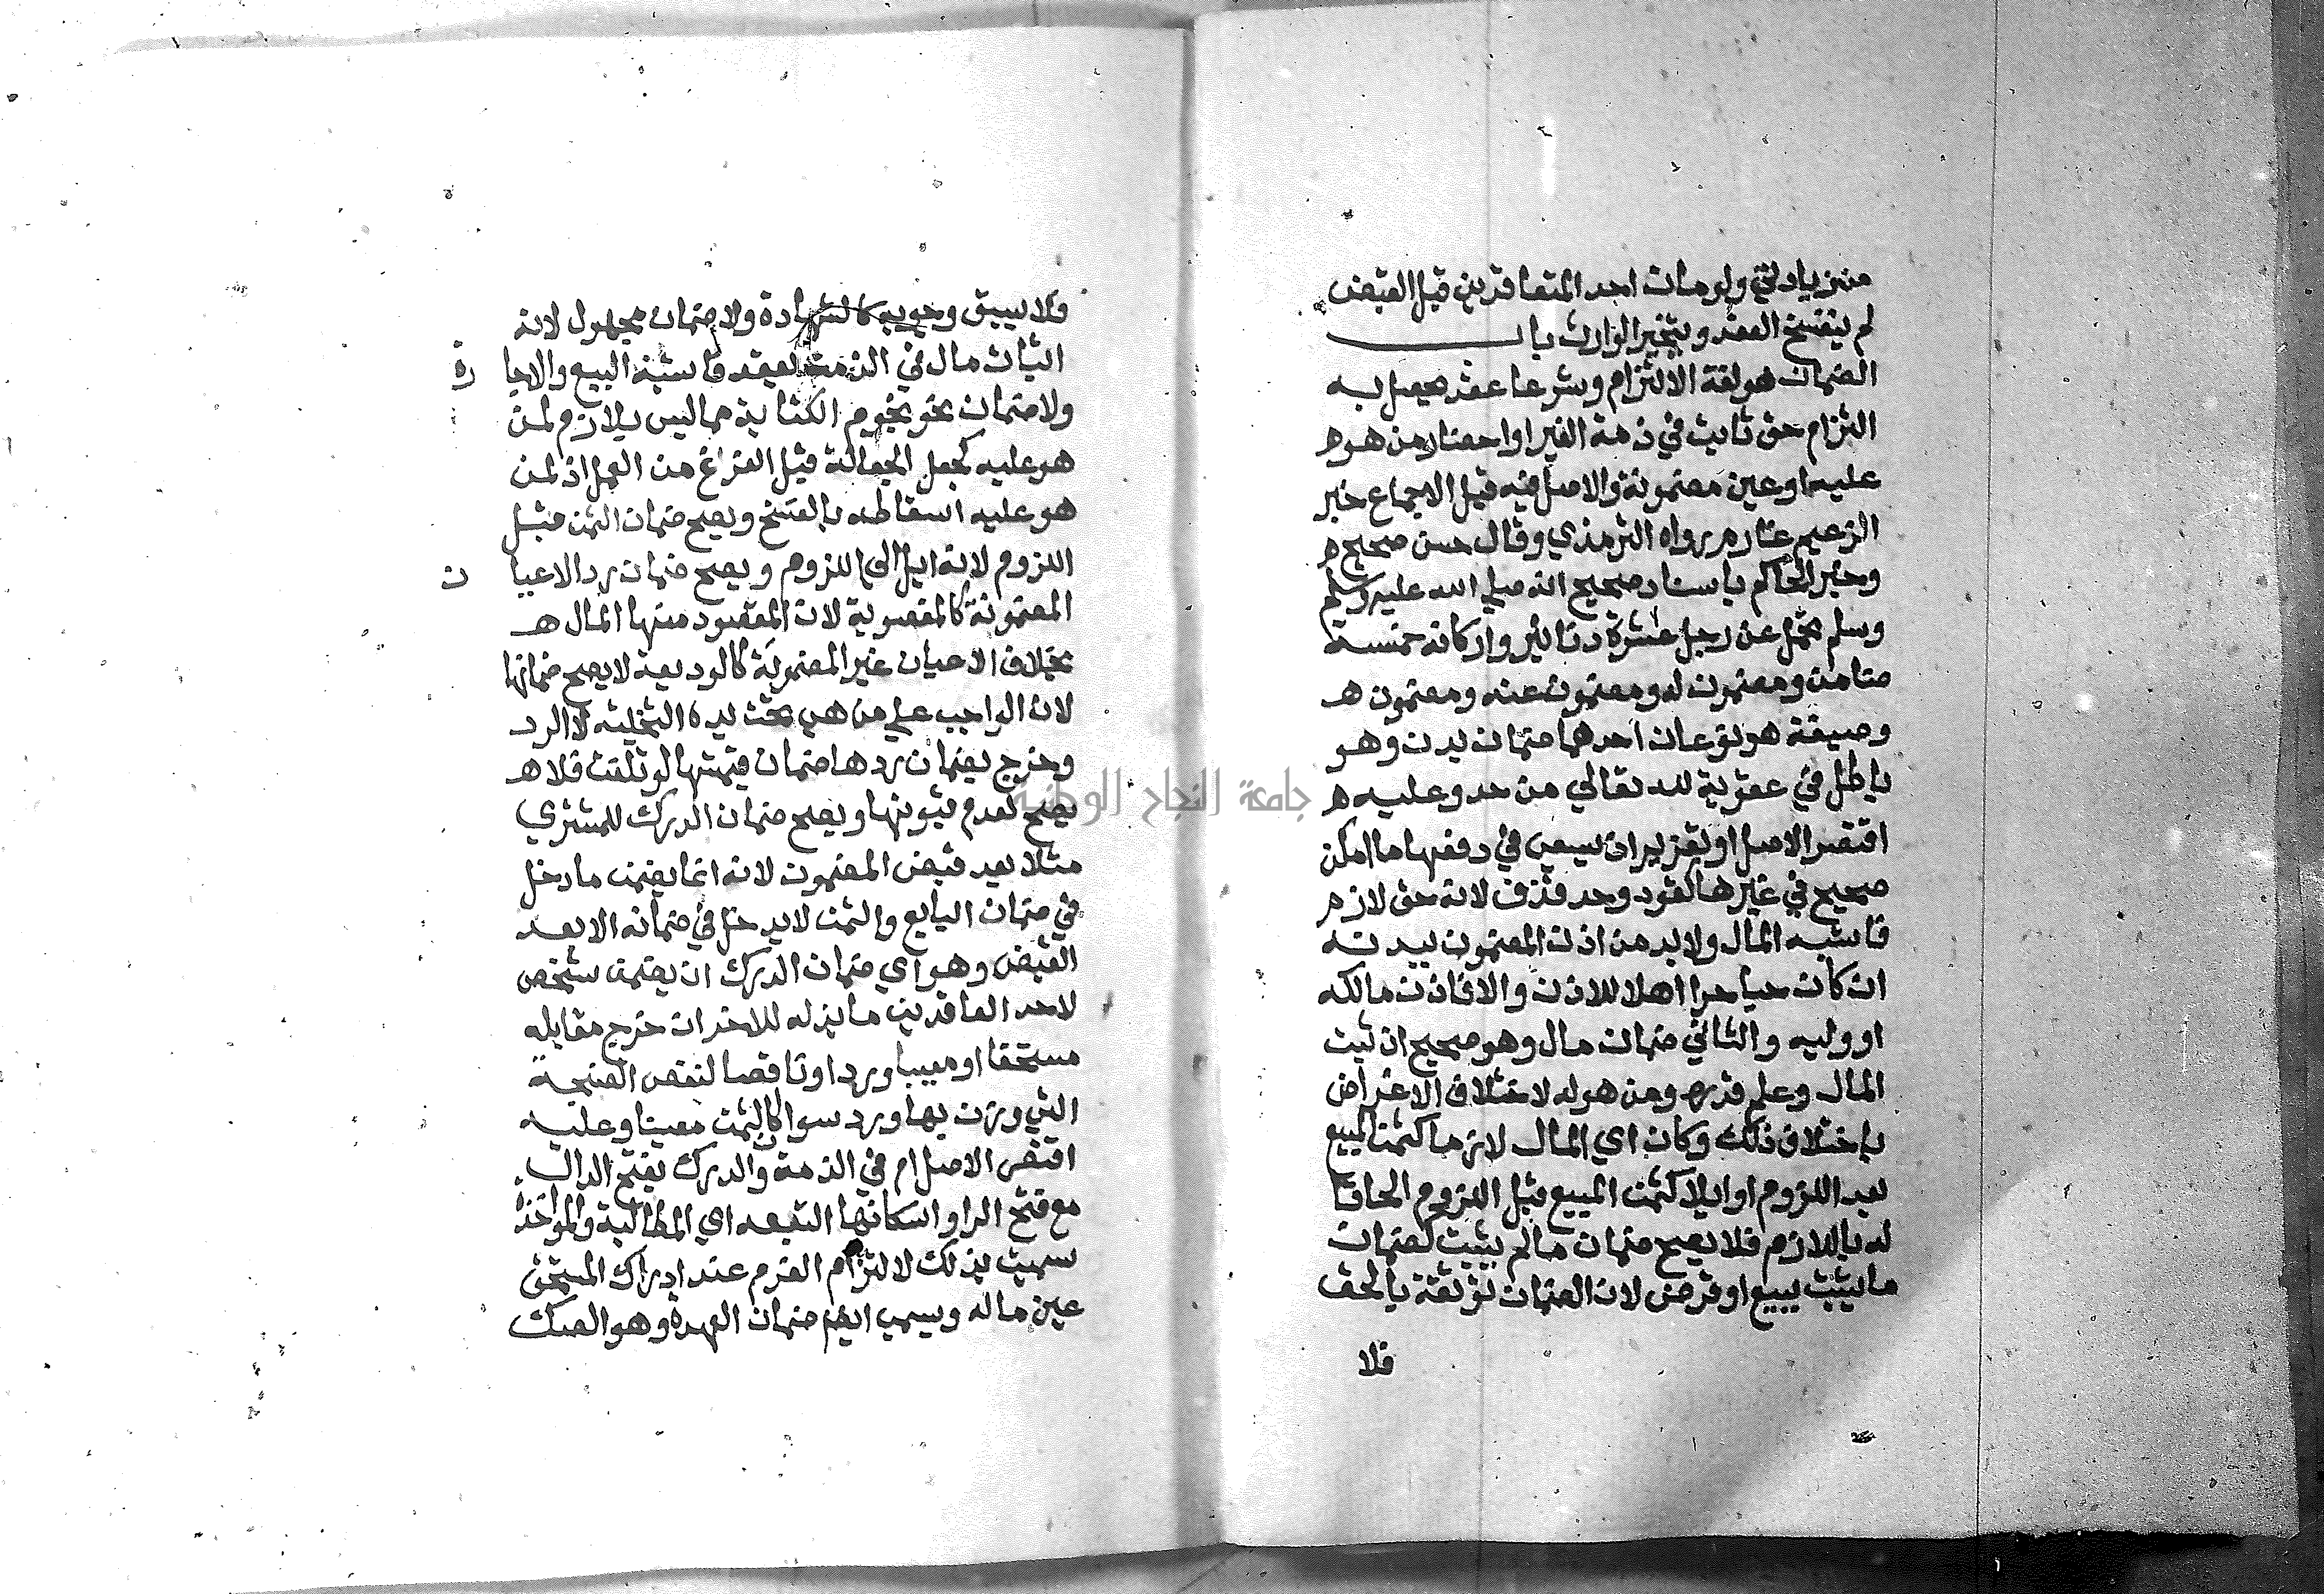 من زيادتي ولو مات احد المتعاقدين قبل القبض
لم ينفسخ العقد ويتخير الوارث باب
الضمان هو لغة الالتزام وشرعا عقد يحصل به
التزام حق ثابت في ذمة الغير او احضار من هو ه
عليه او عين مضمونة والاصل فيه قبل الاجماع خبر
الزعيم غارم رواه الترمذي وقال حسن صحيح ه
وخبر الحاكم باسناد صحيح انه صلي الله عليه وسلم
وسلم تحمل عن رجل عشرة دنانير واركانه خمسة
ضامن ومضمون له ومضمون عنه ومضمون هـ
وصيغة هو نوعان احدهما ضمان بدن وهو
باطل في عقوبة لله تعالي من حد وعليه ه
اقتصر الاصل او تعزير ان يسعي في دفعها ما امكن
صحيح في غيرها كقود وحد قذف لانه حق لازم
فاشبه المال ولا بد من اذن المضمون ببدنه
ان كان حيا حرا اهلا للاذن والا فاذن مالكه
او وليه والثاني ضمان مال وهو صحيح ان ثبت
المال وعلم قدره ومن هو له لاختلاف الاغراض
باختلاف ذلك وكان اي المال لازما كثمن المبيع
بعد اللزوم او ايلا كثمن المبيع قبل اللزوم الحاقا
له باللازم فلا يصح ضمان ما لم يثبت كضمان
ما يثبت ببيع او قرض لان الضمان توثقة بالحق
فلا
فلا يسبق وجوبه كالشهادة ولا ضمان مجهول لانه
اثبات مال في الذمة لعقد فاشبه البيع والاجا
رة
ولا ضمان نحو نجوم الكتابة مما ليس بلازم لمن
هو عليه كجعل الجعالة قبل الفراغ من العمل اذ لمن
هو عليه اسقاطه بالفسخ ويصح ضمان الثمن قبل
اللزوم لانه ايل الي اللزوم ويصح ضمان رد الاعيا
ن
المضمونة كالمغصوبة لان المقصود منها المال هـ
بخلاف الاعيان غير المضمونة كالوديعة لا يصح ضمانها
لان الواجب علي من هي تحت يده التخلية لا الرد
وخرج بضمان ردها ضمان قيمتها لو تلفت فلا هـ
يصح لعدم ثبوتها ويصح ضمان الدرك للمشتري
مثلا بعد قبض المضمون لانه انما يضمن ما دخل
في ضمان البايع والثمن لا يدخل في ضمانه الا بعد
القبض وهو اي ضمان الدرك ان يضمن شخص
لاحد العاقدين ما بذله للاخر ان خرج مقابله
مستحقا او معيبا ورد او ناقصا لنقص الصنجة
التي وزن بها ورد سوا كان الثمن معينا وعليه
اقتصر الاصل ام في الذمة والدرك بفتح الدال
مع فتح الرا واسكانها التبعه اي المطالبة والمواخذة
سميت بذلك لالتزام الغرم عند ادراك المستحق
عين ماله ويسمي ايضا ضمان العهدة وهو الصك